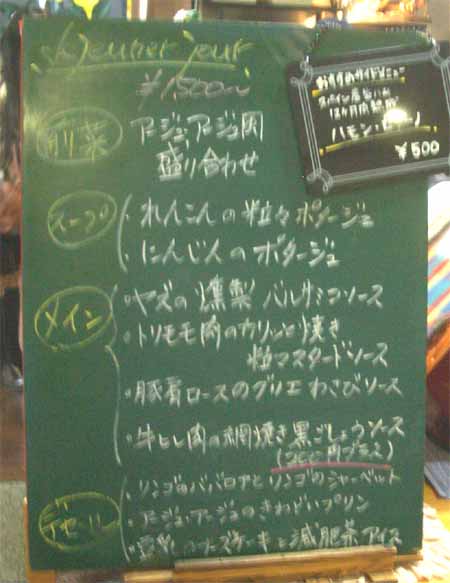 Déjeuner jour
¥1,500〜
前菜
アージュ,アージュ風
盛り合わせ
スープ
・れんこんの粒々ポタージュ
・にんじんのポタージュ
メイン
・ヤズの燻製 バルサミコソース
・トリモモ肉のカリッと焼き
粒マスタードソース
・豚肩ロースのグリエ わさびソース
・牛ヒレ肉の網焼き黒ごしょうソース
(200円プラス)
デセール
・リンゴのババロアとリンゴのシャーベット
・アージュ,アージュのきわどいプリン
・豆乳のチーズケーキと減肥茶アイス
おすすめサイドメニュー
スペイン産
12ヶ月熟成
ハモン
¥500